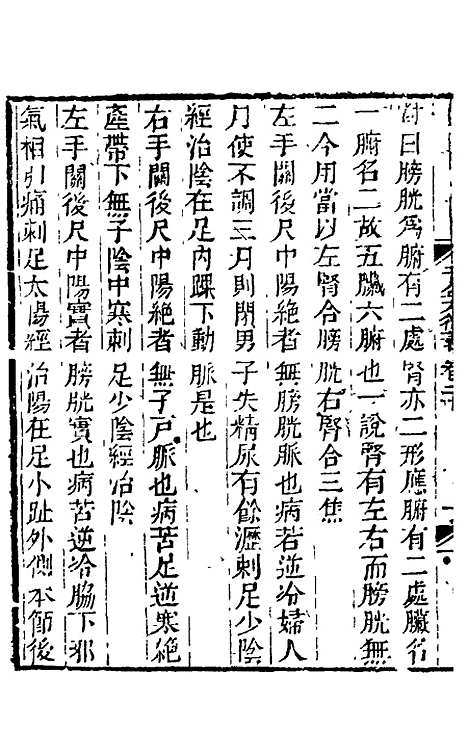 對曰膀胱爲腑有二處腎亦二形應腑有二處臟名
一腑名二故五臟六腑也一說腎有左右而膀胱無
二今用當以左腎合膀胱右腎合三焦
左手關後尺中陽絕者無膀胱脈也病若逆冷婦人
月使不調三月則閉男子失精尿有餘瀝刺足少陰
經治陰在足內踝下動脈是也
右手關後尺中陽絕者無子戶脈也病苦足逆寒絕
產帶下無子陰中寒刺足少陰經治陰
左手關後尺中陽實者膀胱實也病苦逆冷脇下邪
氣相引痛刺足太陽經治陽在足小趾外側本節後